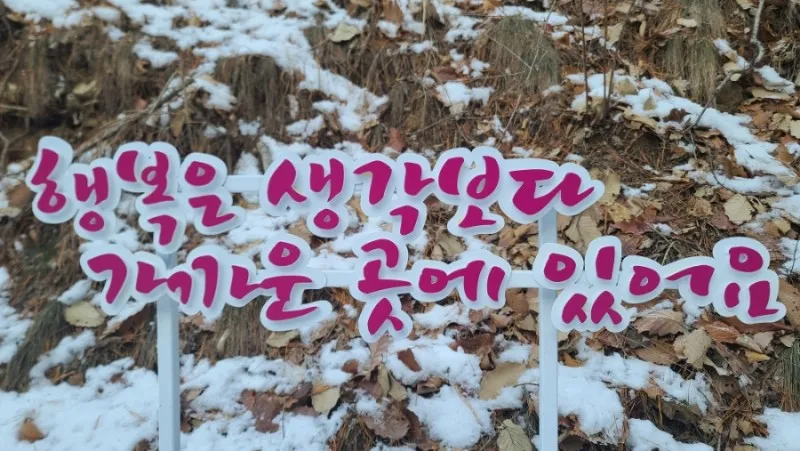 행복은 생각보다
가까운 곳에 있어요